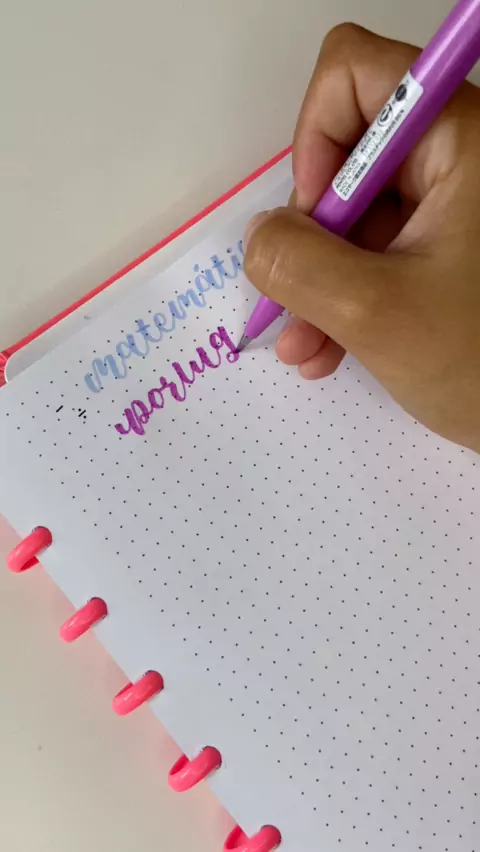 matemáti
porlug